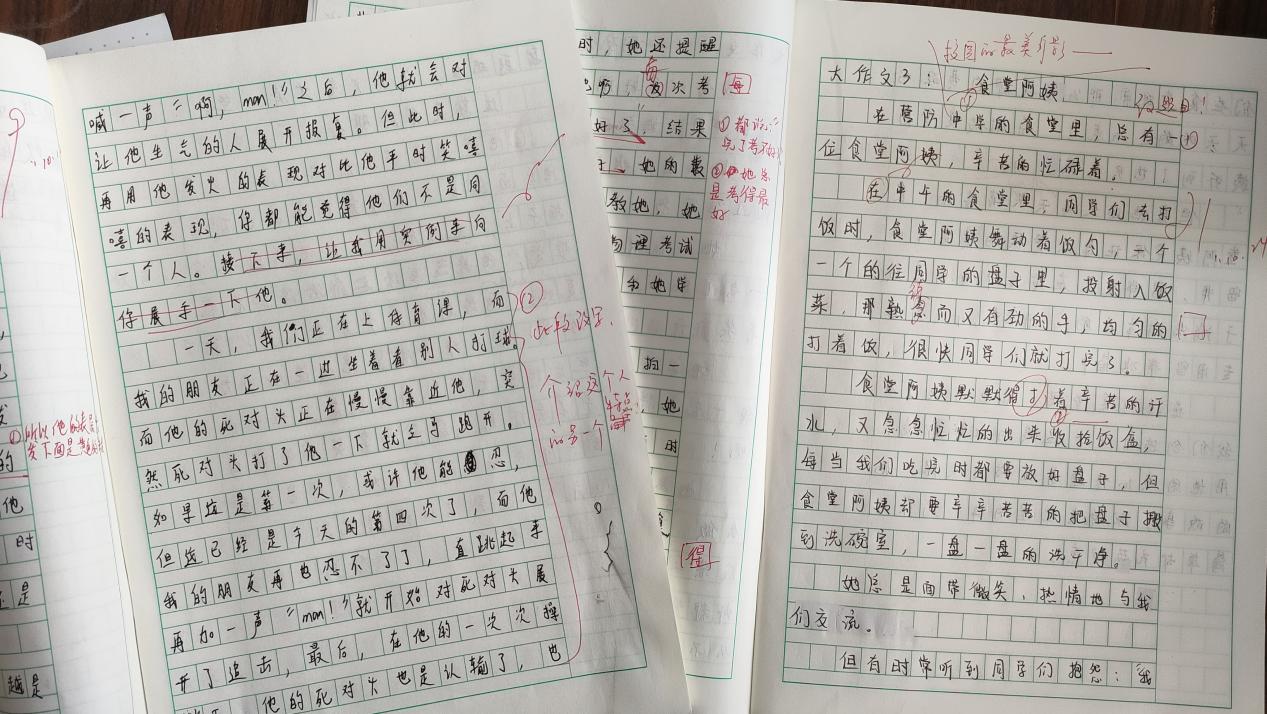 喊一声“啊，man！”之后，他就会对
让他生气的人展开报复。但此时，
再用他发火的表现对比他平时笑嘻
嘻的表现，你都能觉得他们不是同
一个人。接下手，让我用实例手向
你展手一下他。
一天，我们正在上体育课，而
我的朋友正在一边坐着看别人打球。
而他的死对头正在慢慢靠近他，突
然死对头打了他一下就立马跑开。
如果这是第一次，或许他能忍，
但这已经是今天的第四次了，而他
我的朋友再也忍不了了，直跳起手
再加一声“man！”就开始对死对头展
开了追击，最后，在他的一次次
他的死对头也是认输了，也
②
此段没写
介绍这个人
特点
的另一个
时，她还提醒
每次考
好了”结果
她的数
教她，她
物理考试
和她毕
拍一
她
时
每
①都说：“
完了考不好”
②她总
是考得最
好
得
校园的最美身影
大作文3：食堂阿姨
设题目！
在营防中毕的食堂里，总有
位食堂阿姨，辛苦的忙碌着。
在中午的食堂里，同学们去打
饭时，食堂阿姨舞动着饭勺，一个
一个的往同学的盘子里，投射入饭
菜，那熟练而又有劲的手，均匀的
打着饭，很快同学们就打完了。
食堂阿姨默默得打着辛苦的汗
水，又急急忙忙的出来收拾饭盒，
每当我们吃完时都要放好盘子，但
食堂阿姨却要辛辛苦苦的把盘子搬
到洗碗室，一盘一盘的洗干净。
她总是面带微笑，热情地与我
们交流。
但有时常听到同学们抱怨：“我
他
时
越是